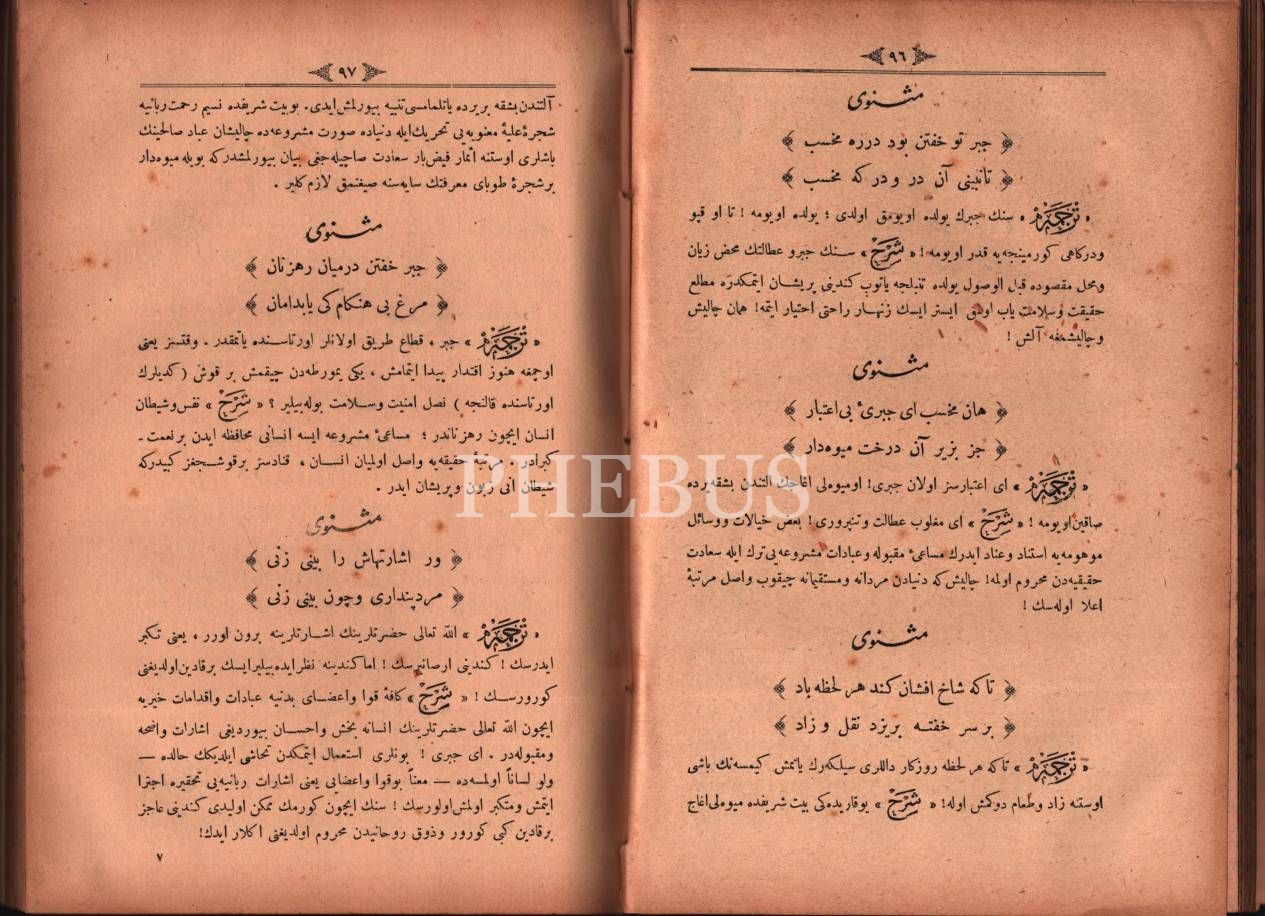 ٩٦
مثنوی
﴿ جبر تو خفتن بود درره مخسب ﴾
﴿ تانبینی آن در و درکه مخسب ﴾
« ترجمه » سنك جبرك یولده اویومق اولدی ؛ یولده اویومه ! تا او قپو
ودرکاهی کورمینجه‌یه قدر اویومه ! « شرح » سنك جبرو عطالتك محض زیان
ومحل مقصوده قبل الوصول یولده تنبلجه یاتوب کندینی پریشان ایتمکدره مطلع
حقیقت وسلامت یاب اولمق ایستر ایسك زنهار راحتی اختیار ایتمه ! همان چالیش
وچالیشمغه آلش !
مثنوی
﴿ هان مخسب ای جبرئ بی‌اعتبار ﴾
﴿ جز بزیر آن درخت میوه‌دار ﴾
« ترجمه » ای اعتبارسز اولان جبری ! اومیوه‌لی اغاجك التندن بشقه‌یرده
صاقین اویومه ! « شرح » ای مغلوب عطالت وتنپروری ! بعض خیالات ووسائل
موهومه‌یه استناد وعناد ایدرك مساعئ مقبوله وعبادات مشروعه‌یی ترك ایله سعادت
حقیقیه‌دن محروم اولمه ! چالیش که دنیادن مردانه ومستقیمانه چیقوب واصل مرتبهٔ
اعلا اوله‌سك !
مثنوی
﴿ تاکه شاخ افشان کند هر لحظه باد ﴾
﴿ بر سر خفته بریزد نقل و زاد ﴾
« ترجمه » تاکه هر لحظه روزکار داللری سیلکه‌رك یاتمش کیمسه‌نك باشی
اوستنه زاد وطعام دوکمش اوله ! « شرح » یوقاریده‌کی بیت شریفده میوه‌لی اغاج
٩٧
آلتندن بشقه بریرده یاتلمامسی تنبیه بیورلمش ایدی . بوبیت شریفده نسیم رحمت ربانیه
شجرهٔ علیهٔ معنویه‌یی تحریك ایله دنیاده صورت مشروعه‌ده چالیشان عباد صالحینك
باشلری اوستنه اثمار فیض‌بار سعادت صاچیله‌جغی بیان بیورلمشدرکه بویله میوه‌دار
برشجرهٔ طوبای معرفتك سایه‌سنه صیغنمق لازم کلیر .
مثنوی
﴿ جبر خفتن درمیان رهزنان ﴾
﴿ مرغ بی هنکام کی یابدامان ﴾
« ترجمه » جبر ، قطاع طریق اولانلر اورتاسنده یاتمقدر . وقتسز یعنی
اوچمغه هنوز اقتدار پیدا ایتمامش ، یکی یمورطه‌دن چیقمش بر قوش ( کدیلرك
اورتاسنده قالنجه ) نصل امنیت وسلامت بوله‌بیلیر ؟ « شرح » نفس وشیطان
انسان ایچون رهزناندر ؛ مساعئ مشروعه ایسه انسانی محافظه ایدن بر نعمت ـ
کبرادر . مرتبهٔ حقیقه‌یه واصل اولمیان انسان ، قنادسز برقوشجغز کبیدرکه
شیطان انی زبون وپریشان ایدر .
مثنوی
﴿ ور اشارتهاش را بینی زنی ﴾
﴿ مردپنداری وچون بینی زنی ﴾
« ترجمه » الله تعالی حضرتلرینك اشارتلرینه برون اورر ، یعنی تکبر
ایدرسك ! کندینی ارصانیرسك ! اماکندینه نظر ایده‌بیلیرایسك برقادین اولدیغنی
کورورسك ! « شرح » کافهٔ قوا واعضای بدنیه عبادات واقدامات خیریه
ایچون الله تعالی حضرتلرینك انسانه بخش واحسان بیوردیغی اشارات واضحه
ومقبوله‌در . ای جبری ! بونلری استعمال ایتمکدن تحاشی ایلدیکك حالده —
ولو لساناً اولمسه‌ده — معناً بوقوا واعضایی یعنی اشارات ربانیه‌یی تحقیره اجترا
ایتمش ومتکبر اولمش اولورسك ! سنك ایچون کورمك ممکن اولیدی کندینی عاجز
برقادین کبی کورور وذوق روحانیدن محروم اولدیغنی اکلار ایدك !
٧
PHEBUS